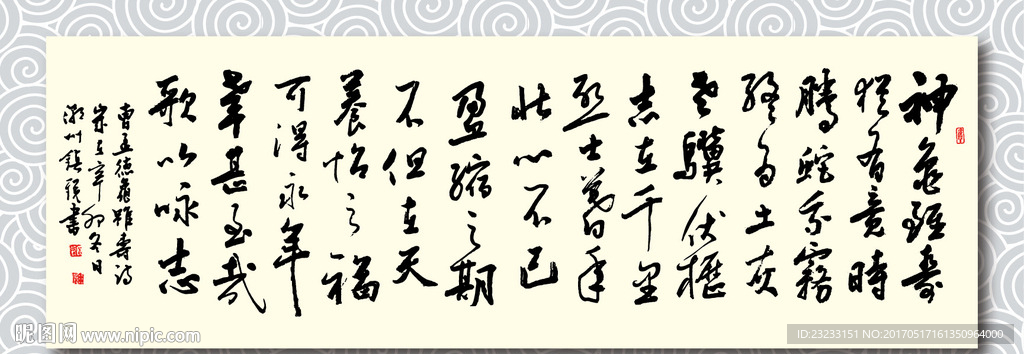 神龜雖壽
猶有竟時
騰蛇乘霧
終為土灰
老驥伏櫪
志在千里
烈士暮年
壯心不已
盈縮之期
不但在天
養怡之福
可得永年
幸甚至哉
歌以詠志
曹孟德龜雖壽詩
歲在辛卯冬日
潮州鎮書
昵图网 www.nipic.com
ID:23233151 NO:20170517161350964000